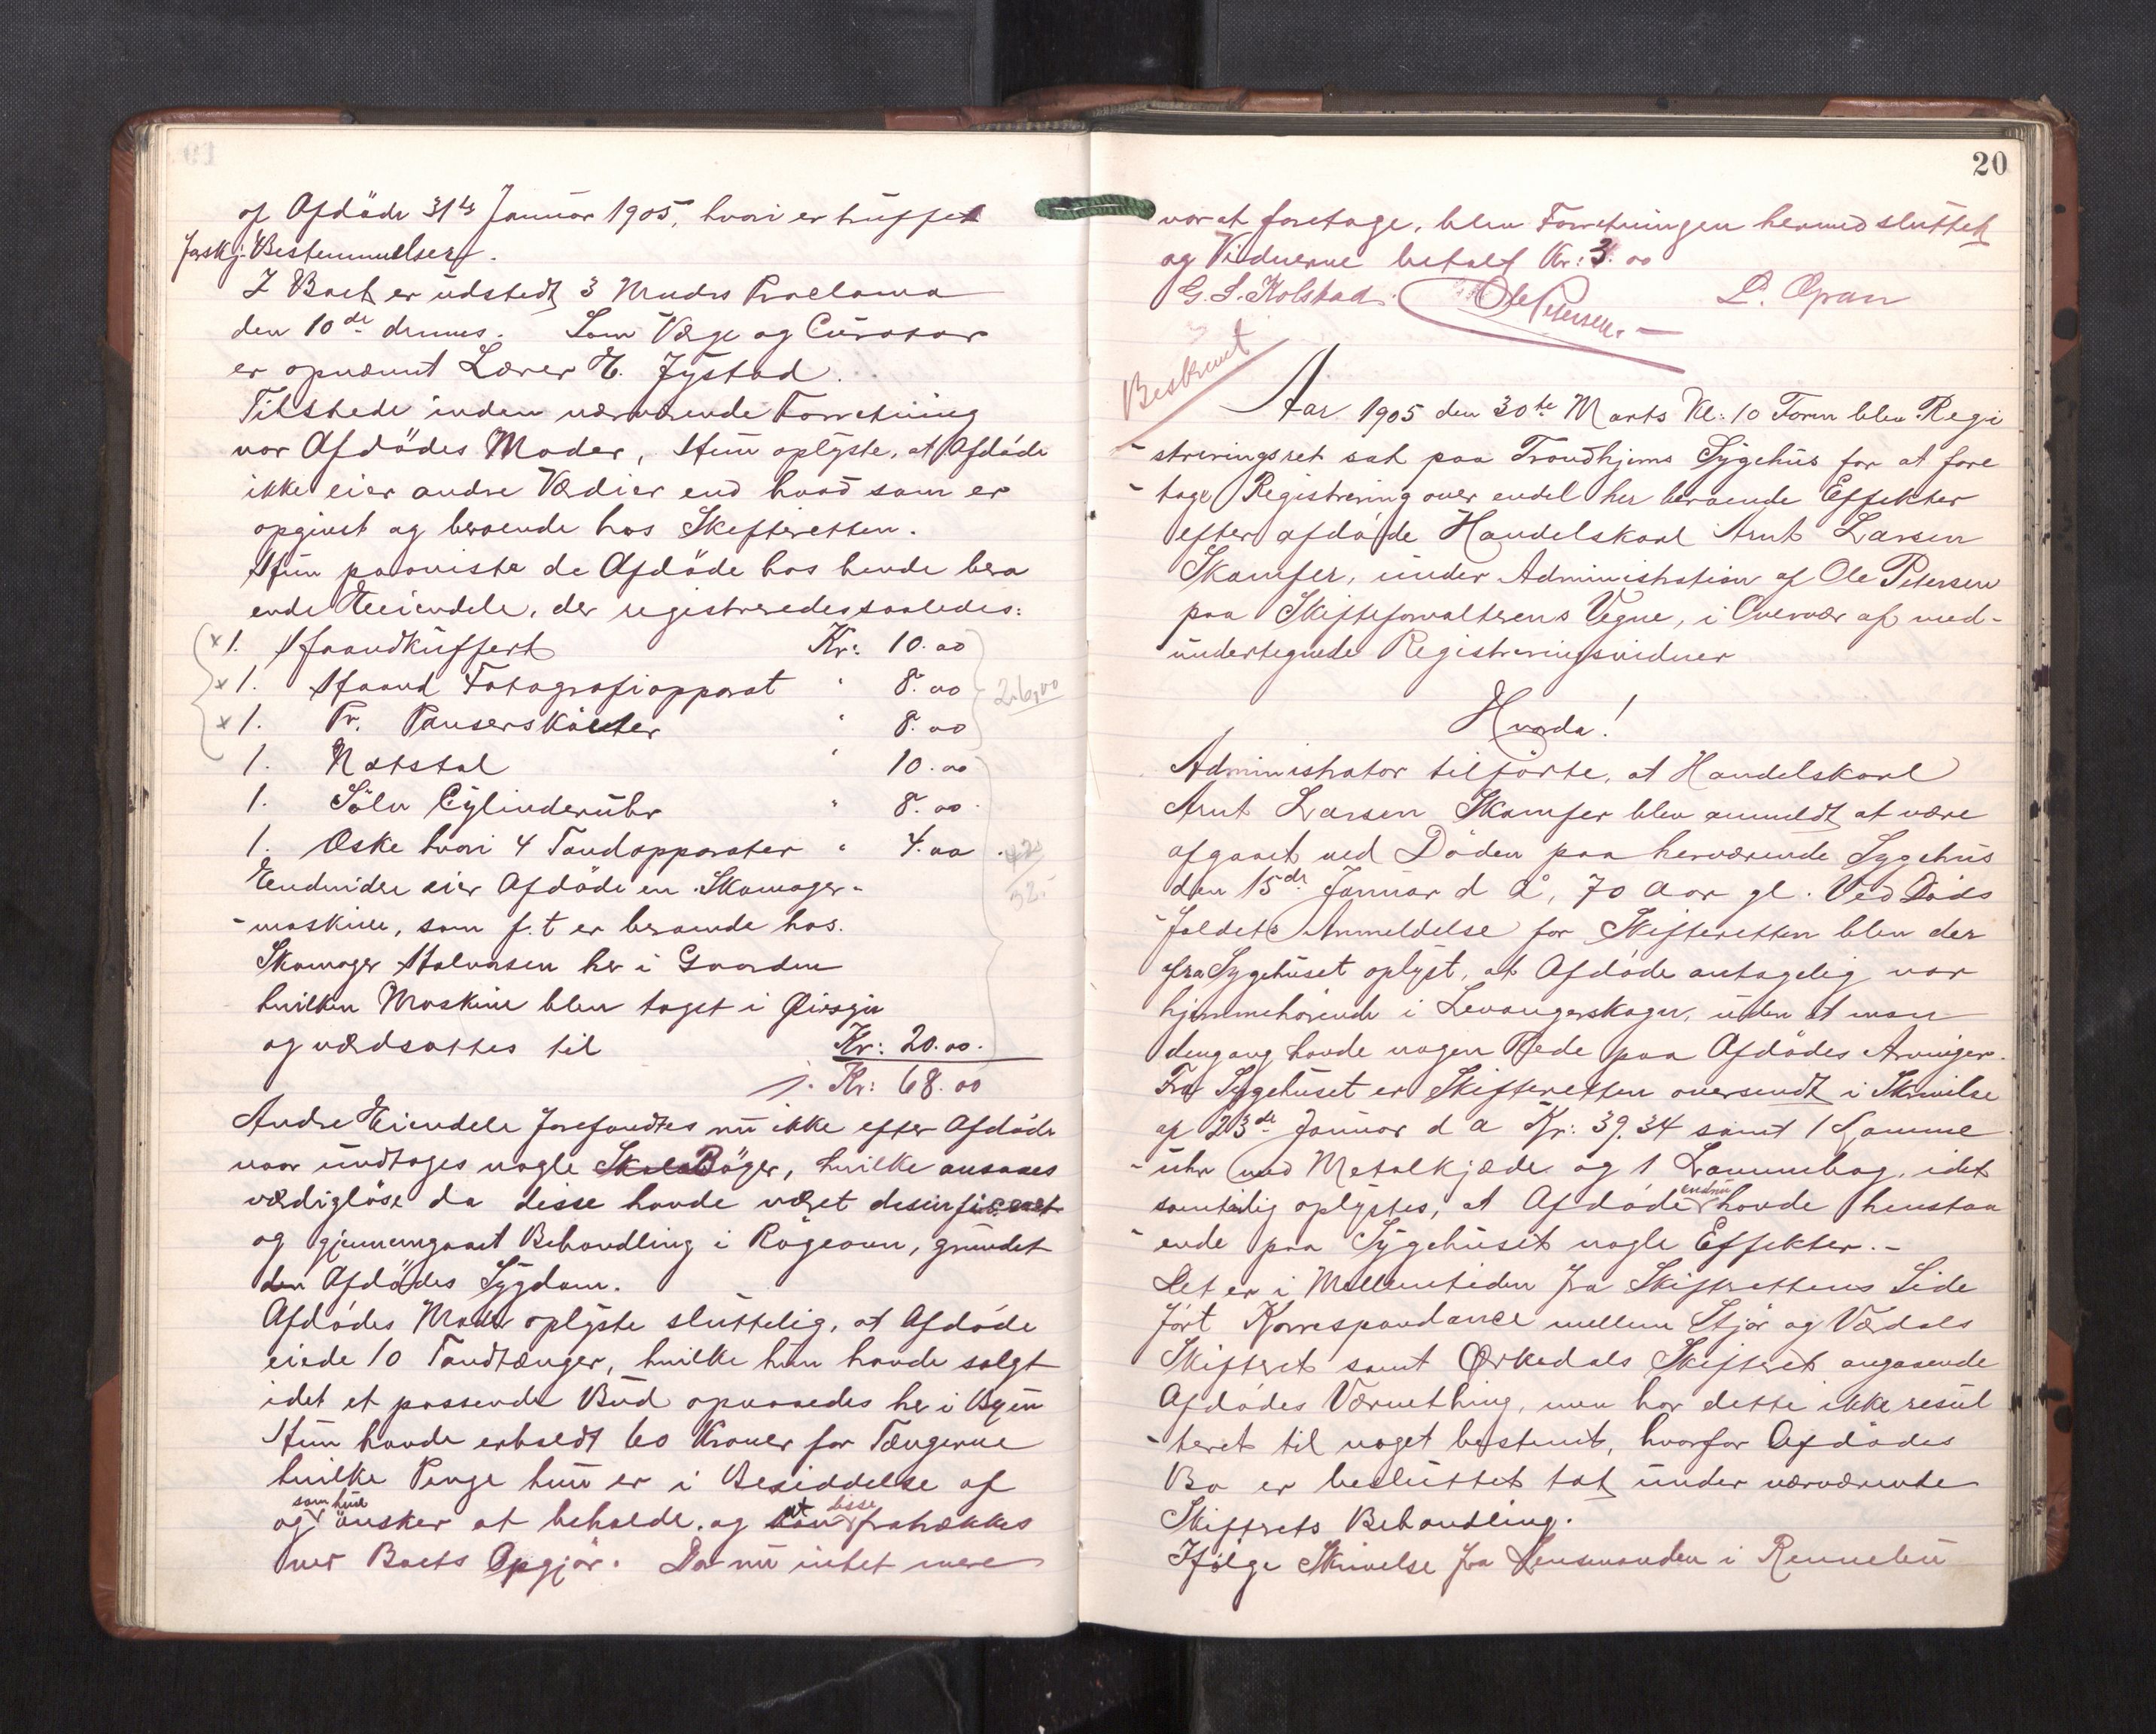 af Afdöde 31te Januar 1905, hvori er truffet
forskj. Bestemmelser.
I Boet er udstedt 3 Mndrs Proclama
den 10de dennes. Som Værge og Curator
er opnævnt Lærer E. Jystad.
Tilstede inden nærværende Forretning
var Afdödes Moder, Hun oplyste, at Afdöde
ikke eier andre Værdier end hvad som er
opgivet og beroende hos Skifteretten.
Hun paaviste de Afdöde hos hende bero
ende Eiendele, der registreredes saaledes:
x 1. Haandkuffert Kr: 10.00
x 1. Haand Fotografiapparat " 8.00
x 1. Pr. Pansersköiter " 8.00
26,00
1. Natstol " 10.00
1. Sölv Cylinderuhr " 8.00
1. Æske hvori 4 Tandapparater " 4.00
Endvidere eier Afdöde en Skomager-
-maskine, som f.t er beroende hos
Skomager Halvorsen her i Gaarden
hvilken Maskine blev taget i Öiesyn
og værdsattes til Kr: 20.00.
Kr: 68.00
Andre Eiendele forefandtes nu ikke efter Afdöde
naar undtages nogle Böger, hvilke ansaaes
værdiglöse da disse havde været desinficeret
og gjennemgaaet Behandling i Rögeovn, grundet
den Afdödes Sygdom.
Afdödes Moder oplyste sluttelig, at Afdöde
eiede 10 Tandtænger, hvilke hun havde solgt
idet et passende Bud opnaaedes her i Byen
Hun havde erholdt 60 Kroner for Tængerne
hvilke Penge hun er i Besiddelse af
og som hun önsker at beholde, og at disse fratrækkes
ved Boets Opgjör. Da nu intet mere
20
var at foretage, blev Forretningen hermed sluttet
og Vidnerne betalt Kr: 3.00
G. S. Kolstad. Ole Petersen. L. Opran
Beskrevet
Aar 1905 den 30te Marts Kl: 10 Form blev Regi
-streringsret sat paa Trondhjems Sygehus for at fore
-tage Registrering over endel her beroende Effekter
efter afdöde Handelskarl Arnt Larsen
Skamfer, under Administration af Ole Petersen
paa Skifteforvalterens Vegne, i Overvær af med-
undertegnede Registreringsvidner
Hvorda!
Administrator tilförte, at Handelskarl
Arnt Larsen Skamfer blev anmeldt at være
afgaaet ved Döden paa herværende Sygehus
den 15de Januar d å, 70 Aar gl. Ved Döds
-faldets Anmeldelse for Skifteretten blev der
fra Sygehuset oplyst, at Afdöde antagelig var
hjemmehörende i Levangerskogn, uden at man
dengang havde nogen Rede paa Afdödes Arvinger.
Fra Sygehuset er Skifteretten oversendt i Skrivelse
af 23de Januar d a Kr: 39.34 samt 1 Lomme
-uhr med Metalkjæde og 1 Lommebog, idet
samtidig oplystes, at Afdöde endnu havde henstaa
-ende paa Sygehuset nogle Effekter.-
Det er i Mellemtiden fra Skifterettens Side
fört Korrespondance mellem Stjör og Værdals
Skifteret samt Orkedals Skifteret angaaende
Afdödes Værnething, men har dette ikke resul
-teret til noget bestemt, hvorfor Afdödes
Bo er besluttet tat under nærværende
Skifterets Behandling.
Ifölge Skrivelse fra Lensmanden i Rennebu